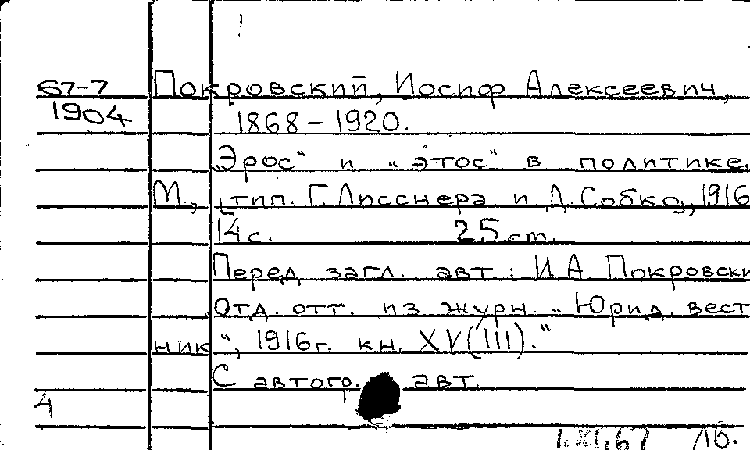 67-7 Покровский, Иосиф Алексеевич,
1904 1868-1920.
„Эрос" и „этос" в политике.
М., [тип. Г. Лисснера и Д. Собко], 1916
14 с. 25 см.
Перед загл. авт.: И.А. Покровски
Отд. отт. из журн. „Юрид. вест
ник", 1916 г. кн. XV(III)."
С автогр. авт.
4
1.XI.67